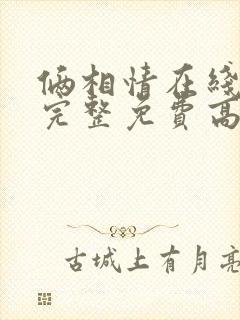 俩相情在线
完整免费高
古城上有月亮